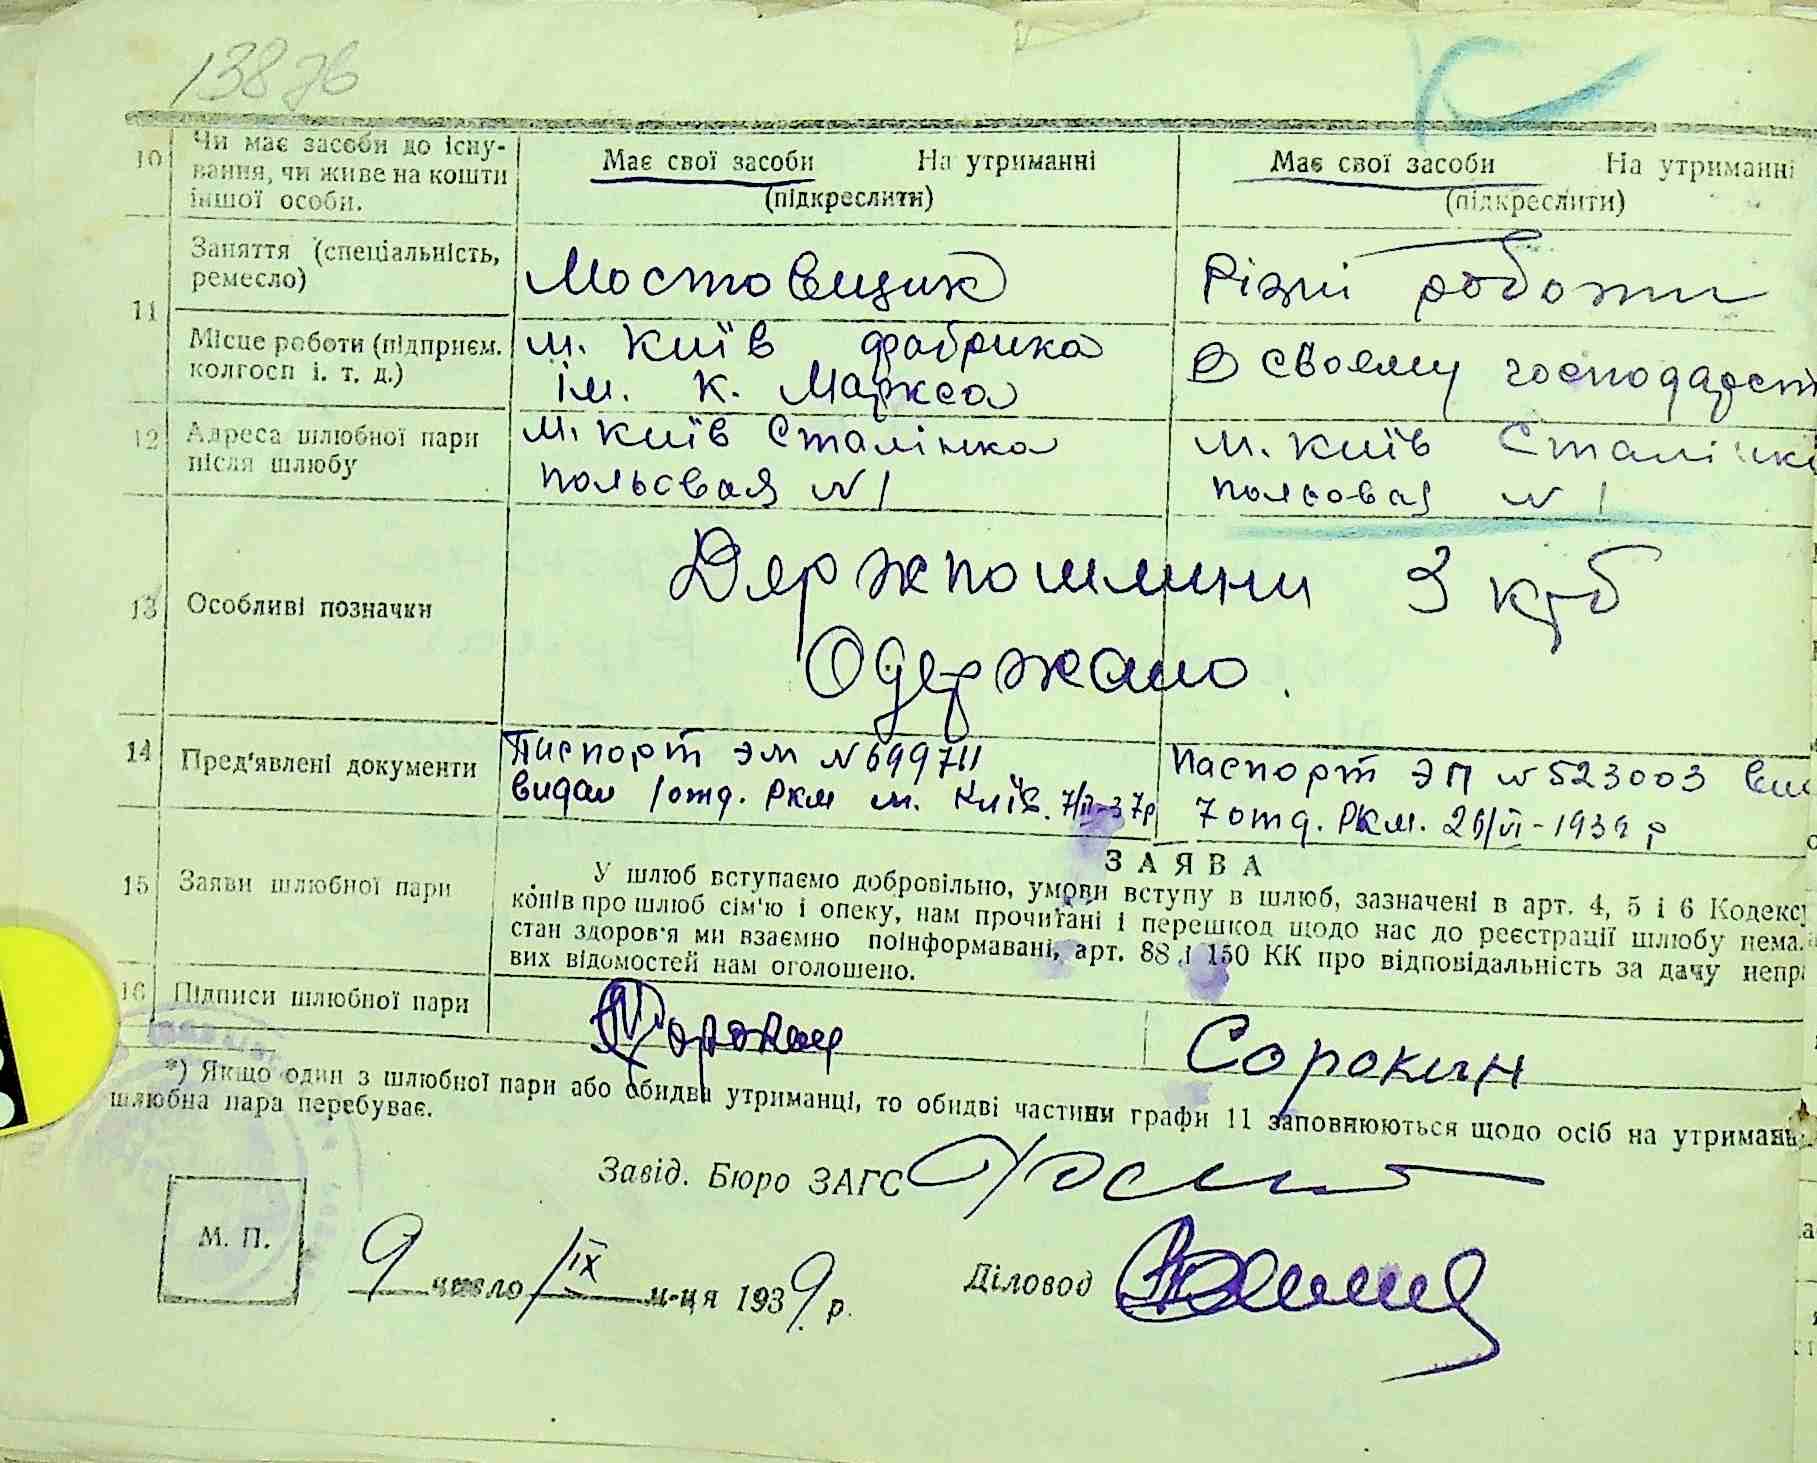 138
10 Чи має засоби до існу-
вання, чи живе на кошти
іншої особи.
Має свої засоби На утриманні
(підкреслити)
Має свої засоби На утриманні
(підкреслити)
11
Заняття (спеціальність,
ремесло)
Мостовщик
Різні роботи
Місце роботи (підприєм.
колгосп і. т. д.)
м. Київ фабрика
ім. К. Маркса
В своєму господарст
12 Адреса шлюбної пари
після шлюбу
м. Київ Сталінка
польовая N 1
м. Київ Сталінк
польовая N 1
13 Особливі позначки
Держпошлини 3 крб
Одержано.
14 Пред'явлені документи
Паспорт ЭМ N 699711
видал 1 отд. РКМ м. Київ. 7/II-37р
Паспорт ЭП N 523003 ви
7 отд. РКМ. 26/VI-1939 р
15 Заяви шлюбної пари
ЗАЯВА
У шлюб вступаємо добровільно, умови вступу в шлюб, зазначені в арт. 4, 5 і 6 Кодексу
конів про шлюб сім'ю і опеку, нам прочитані і перешкод щодо нас до реєстрації шлюбу нема.
стан здоров'я ми взаємно поінформавані, арт. 88 і 150 КК про відповідальність за дачу непра
вих відомостей нам оголошено.
16 Підписи шлюбної пари
Сорокин
*) Якщо один з шлюбної пари або обидва утриманці, то обидві частини графи 11 заповнюються щодо осіб на утриманн
шлюбна пара перебуває.
Завід. Бюро ЗАГС
М. П.
9 число IX м-ця 1939 р.
Діловод